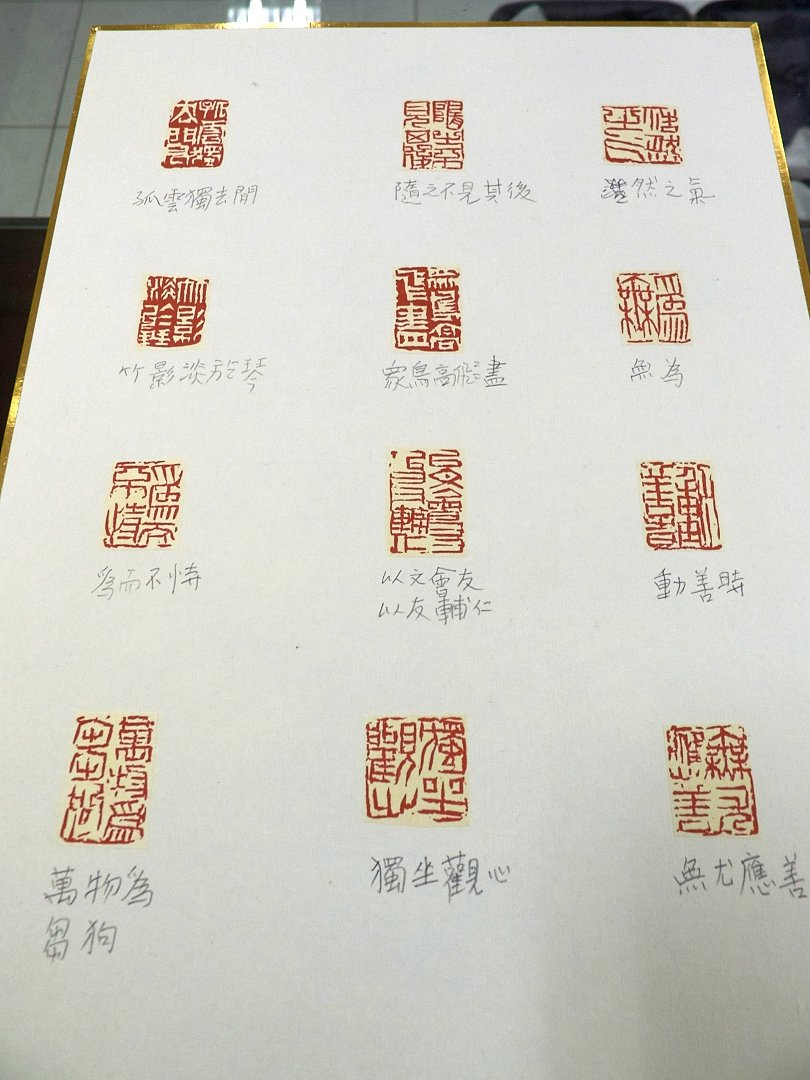 孤雲獨去閒
隨之不見其後
浩然之氣
竹影淡於琴
眾鳥高飛盡
無為
為而不恃
以文會友
以友輔仁
動善時
萬物為
芻狗
獨坐觀心
無尤應善